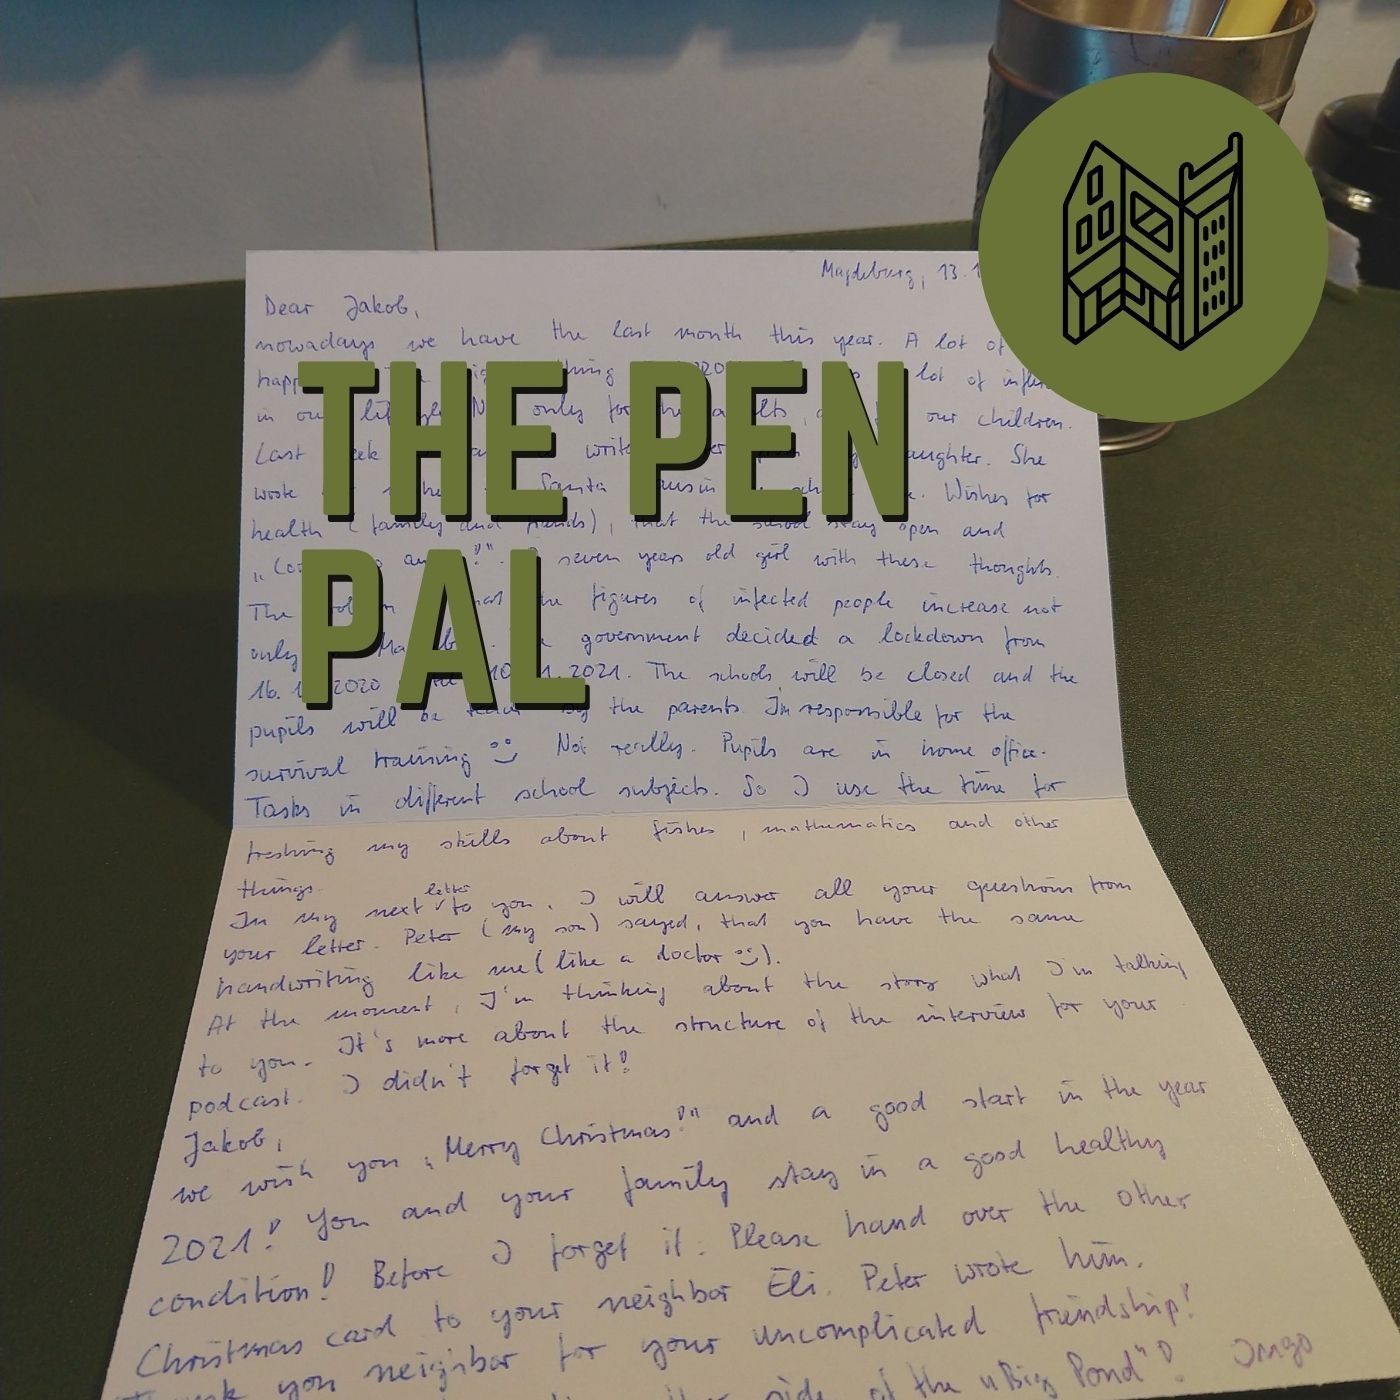 Magdeburg, 13.
Dear Jakob,
nowadays we have the last month this year. A lot of
thing lot of
in our only for our children.
Last daughter. She
wrote Santa Wishes for
health (family and friends), that the school stay open and
seven years old girl with these thoughts.
The figures of infected people increase not
only government decided a lockdown from
16. 2020 2021. The schools will be closed and the
pupils will be by the parents. I'm responsible for the
survival training Not really. Pupils are in home office.
Tasks in different school subjects. So I use the time for
freshing my skills about fishes, mathematics and other
things.
In my next letter to you, I will answer all your questions from
your letter. Peter (my son) sayed, that you have the same
handwriting like me (like a doctor).
At the moment, I'm thinking about the story what I'm talking
to you. It's more about the structure of the interview for your
podcast. I didn't forget it!
Jakob,
we wish you „Merry Christmas!" and a good start in the year
2021! You and your family stay in a good healthy
condition! Before I forget it: Please hand over the other
Christmas card to your neighbor Eli. Peter wrote him.
you neighbor for your uncomplicated friendship!
side of the „Big Pond"! Ingo
THE PEN
PAL